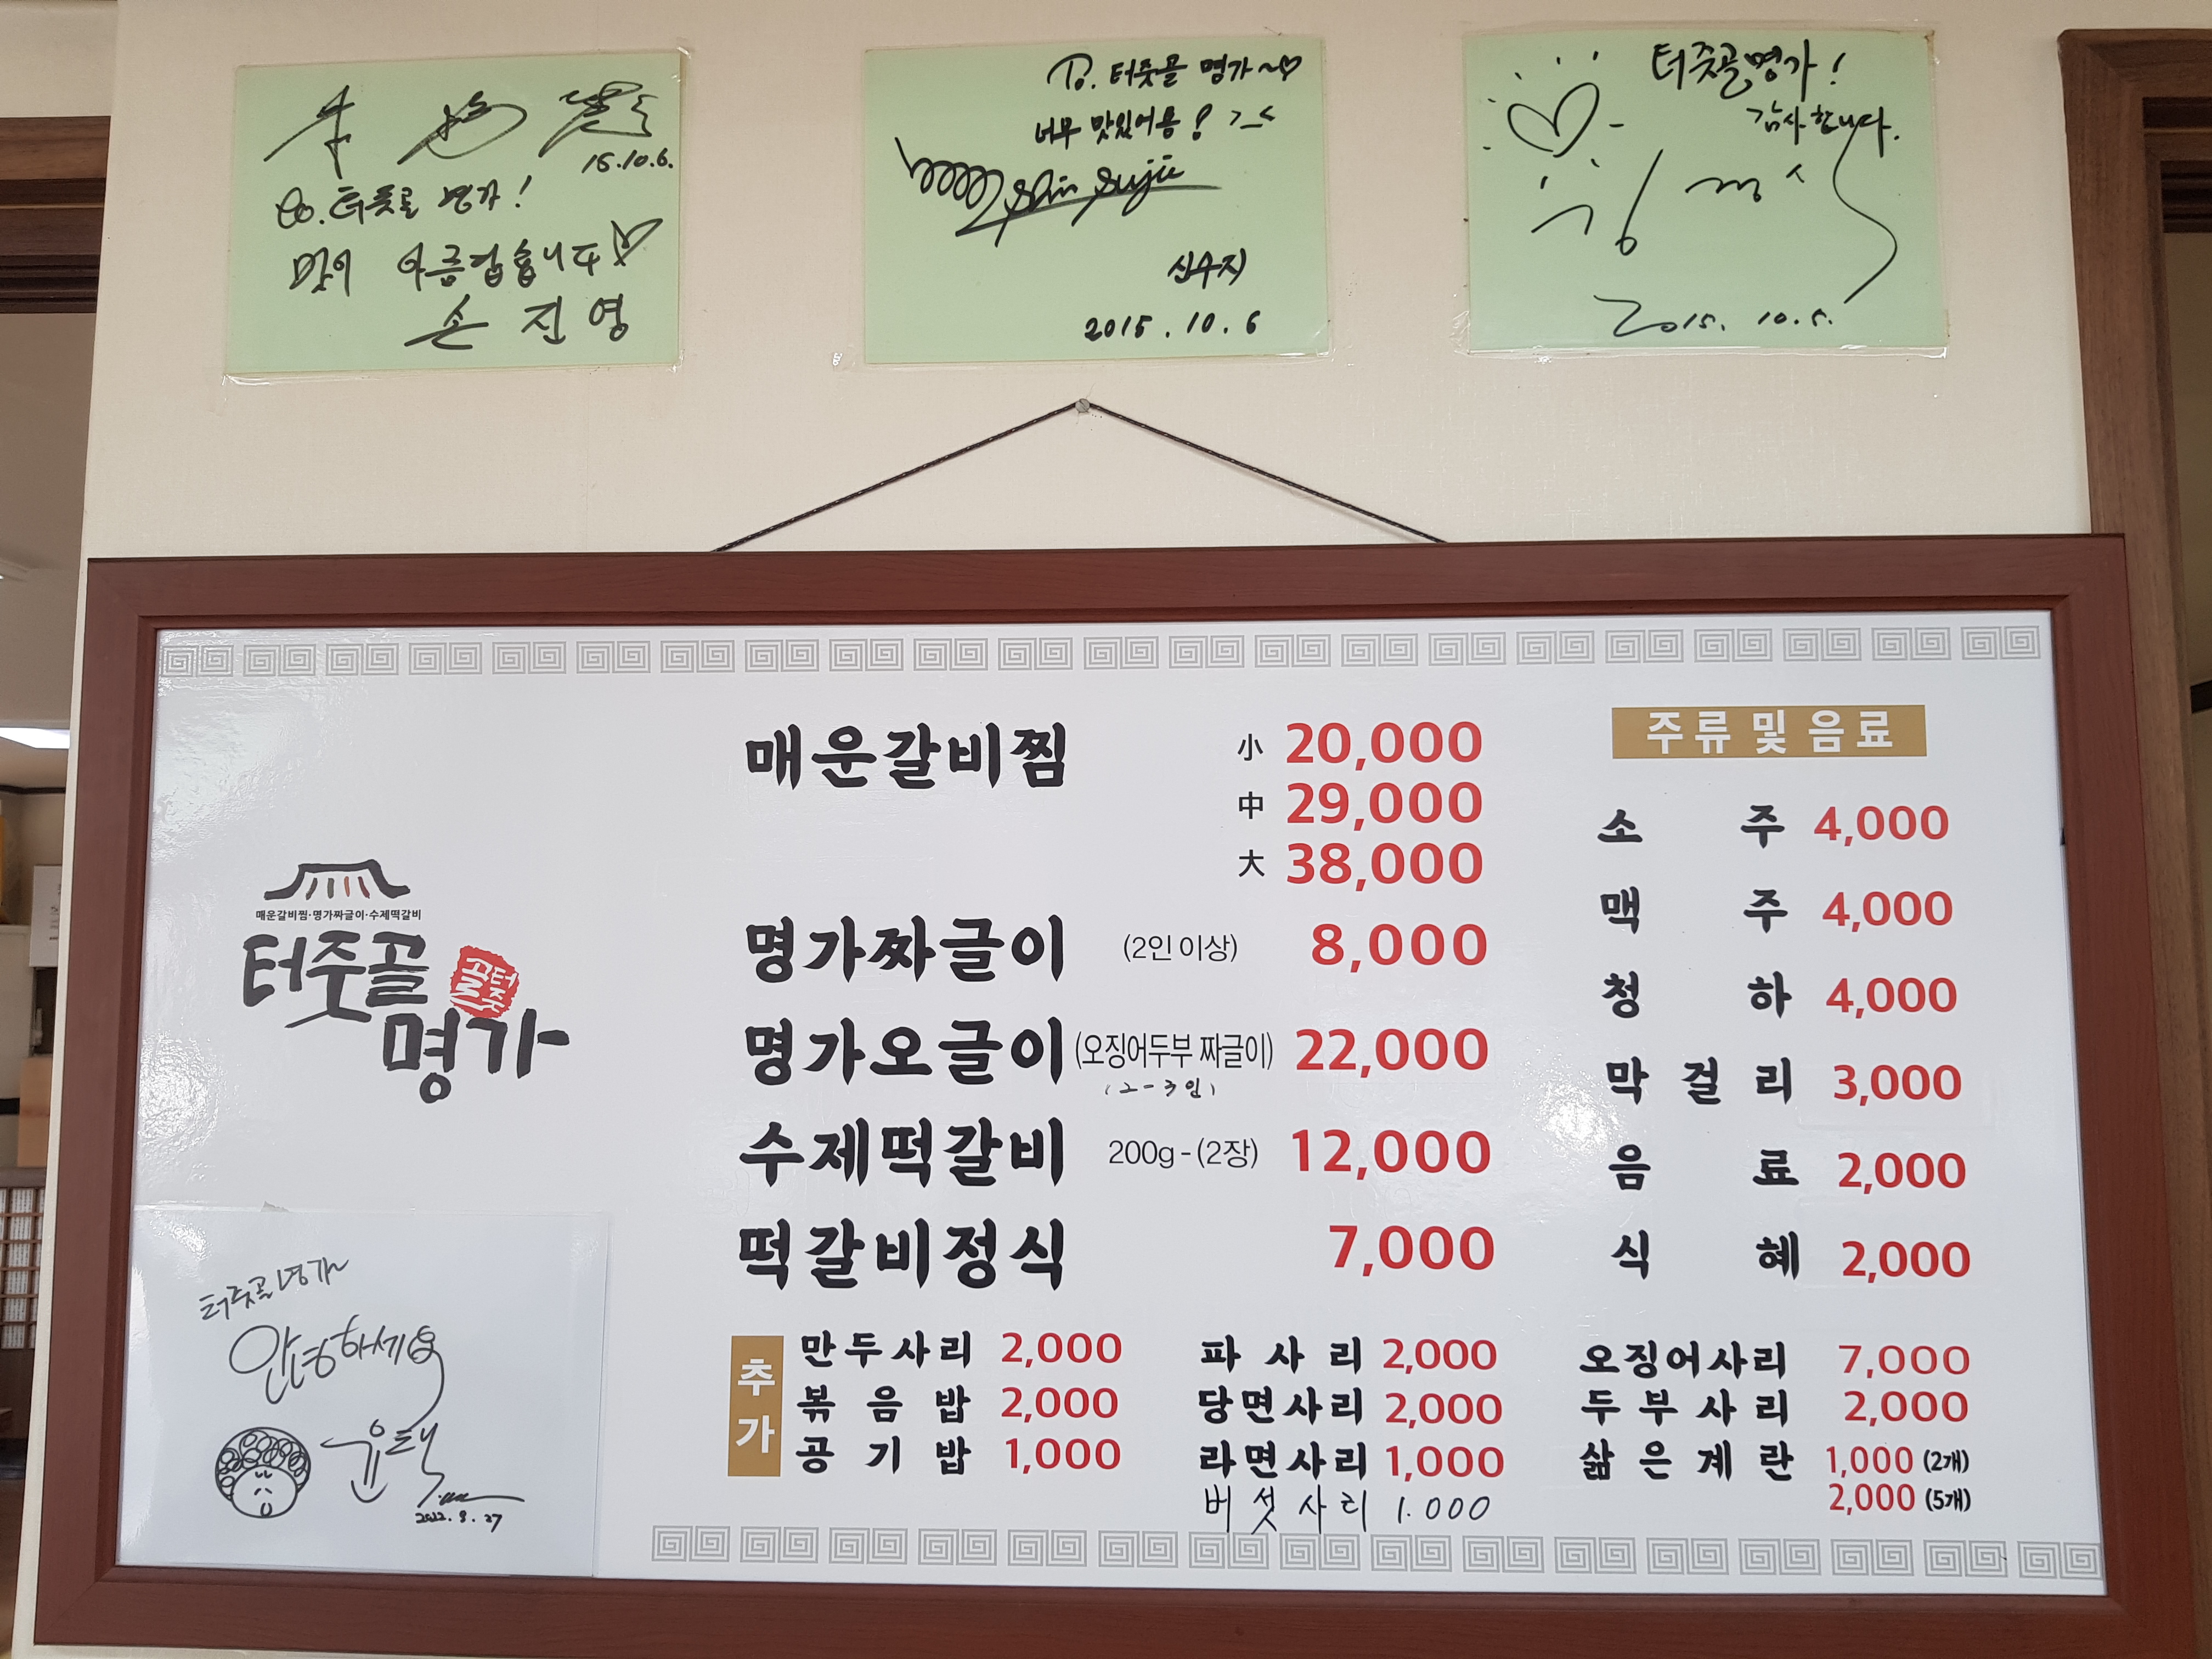 15.10.6.
to. 터줏골 명가!
맛이 아름답습니다
손진영
To. 터줏골 명가~♡
너무 맛있어용! >_<
Shin Suji
신수지
2015.10.6
터줏골명가!
감사합니다.
2015. 10.5.
매운갈비찜·명가짜글이·수제떡갈비
터줏골
터줏골
명가
터줏골명가~
안녕하세요
윤택
2022.8.27
매운갈비찜 小 20,000
中 29,000
大 38,000
명가짜글이 (2인 이상) 8,000
명가오글이 (오징어두부 짜글이) 22,000
(2-3인)
수제떡갈비 200g - (2장) 12,000
떡갈비정식 7,000
주류 및 음료
소주 4,000
맥주 4,000
청하 4,000
막걸리 3,000
음료 2,000
식혜 2,000
추가
만두사리 2,000
볶음밥 2,000
공기밥 1,000
파사리 2,000
당면사리 2,000
라면사리 1,000
버섯사리 1.000
오징어사리 7,000
두부사리 2,000
삶은계란 1,000 (2개)
2,000 (5개)